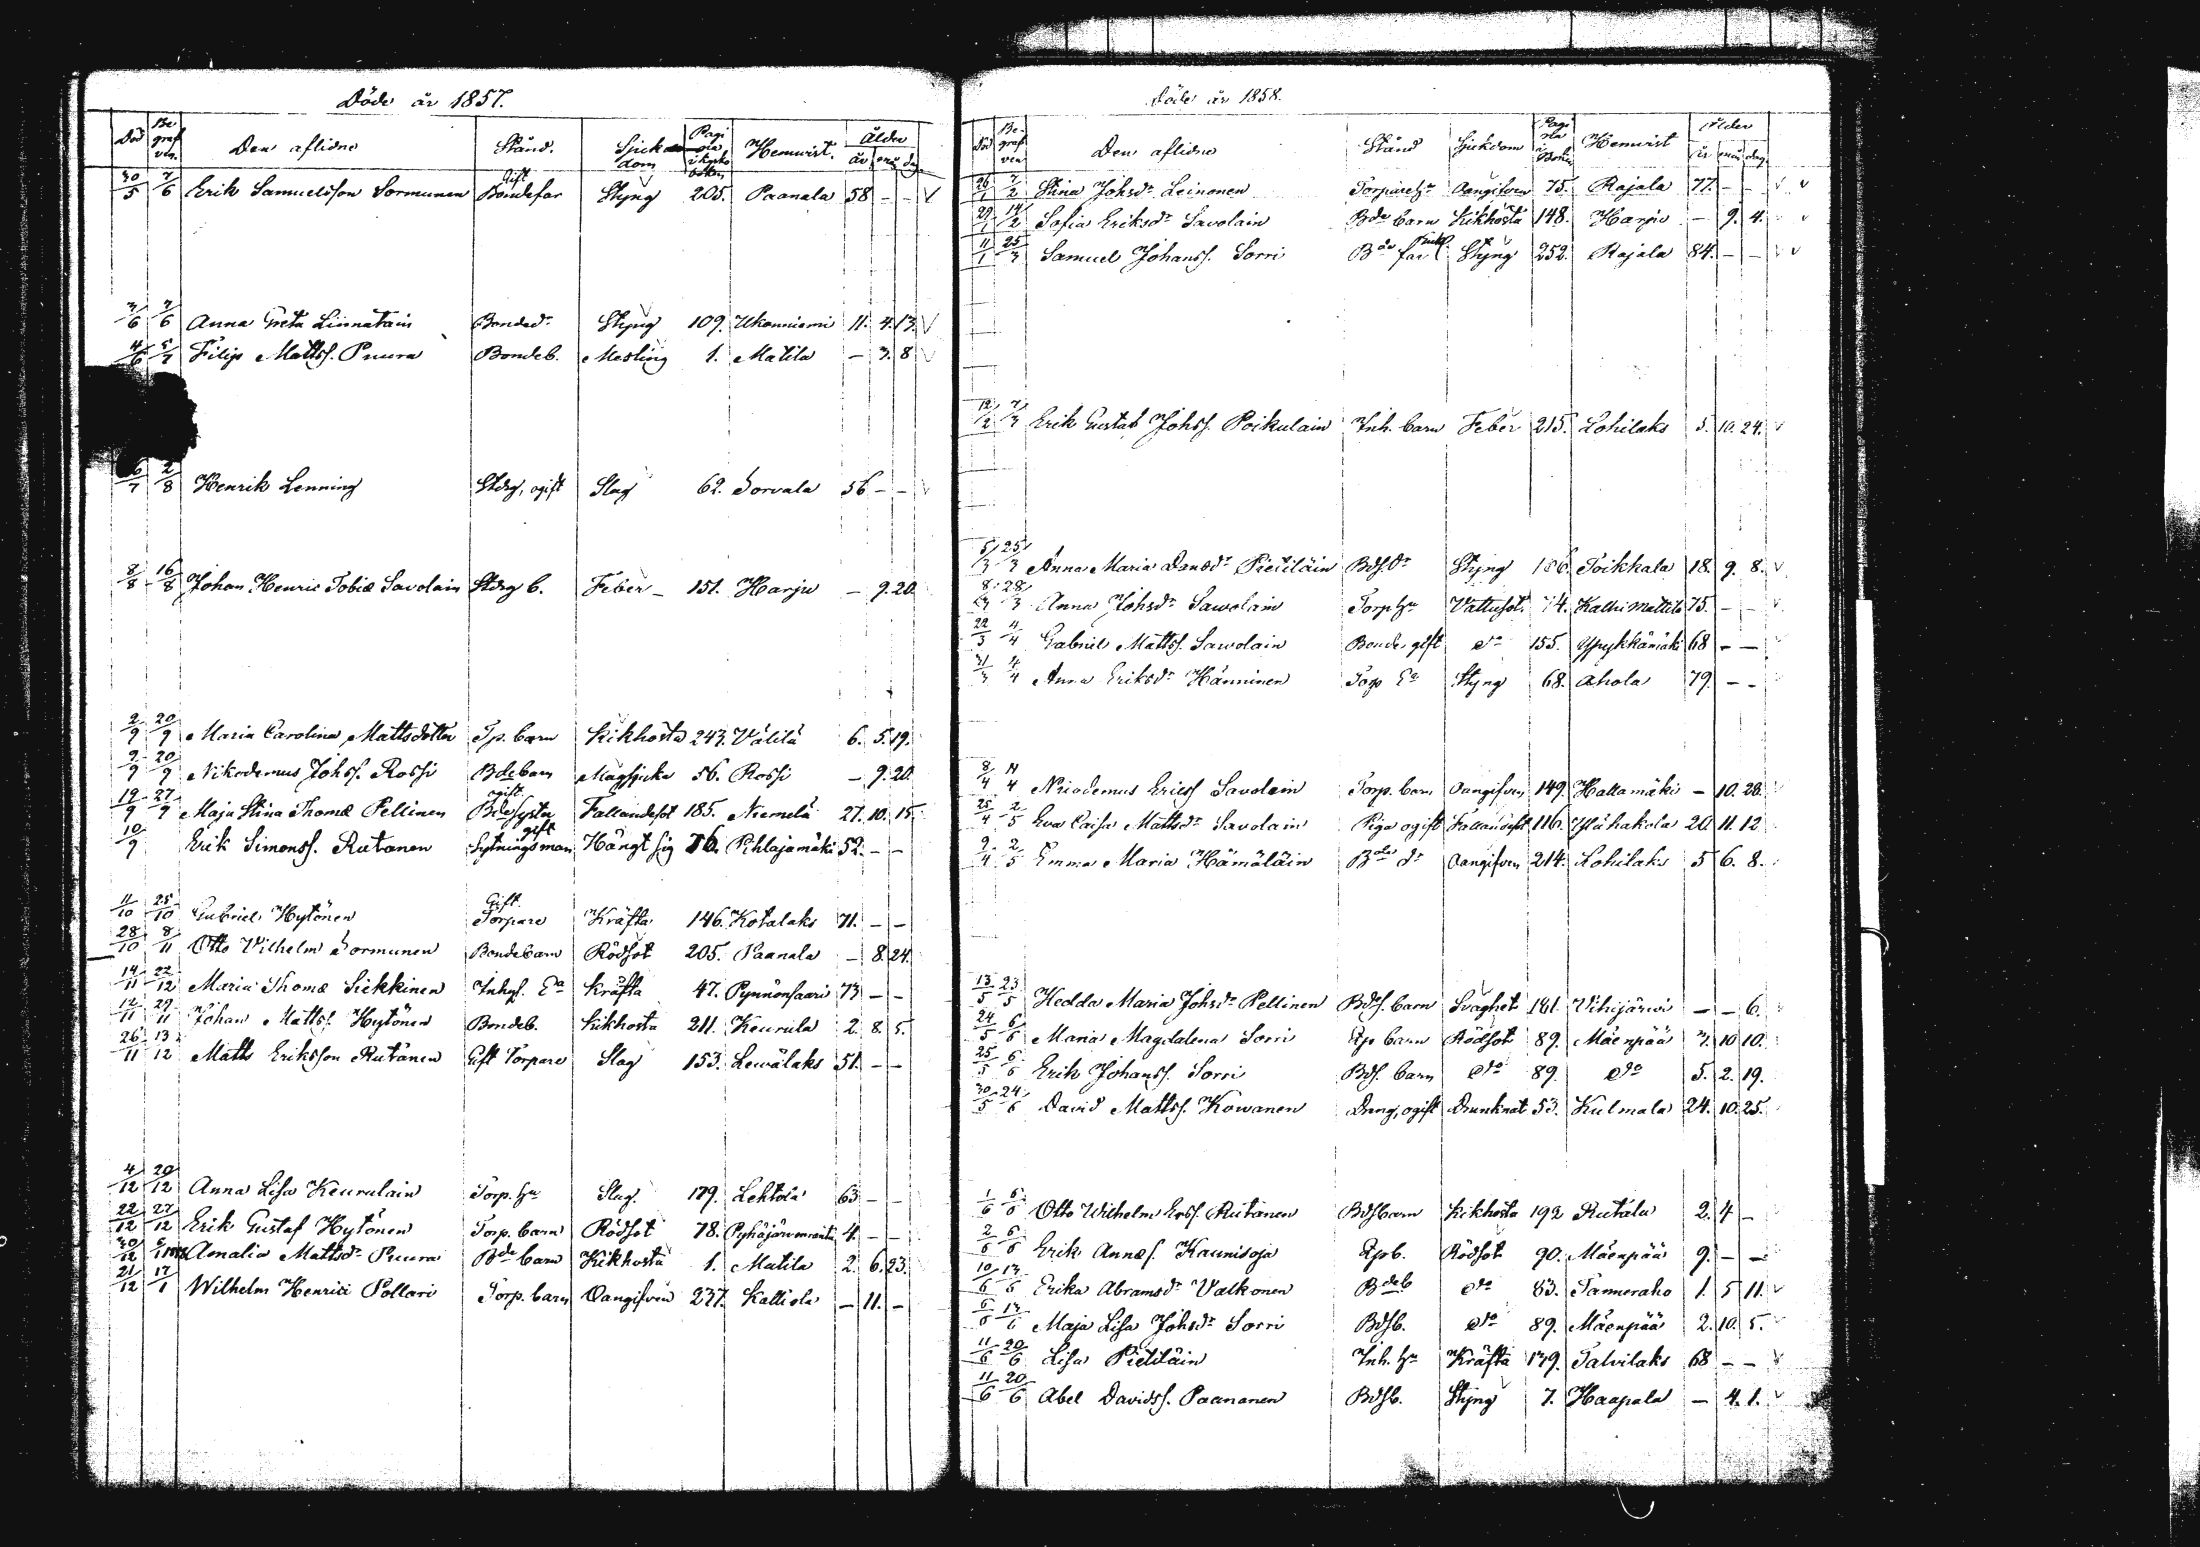 Döde år 1857.
Död Begrafven. Den aflidne Stånd. Sjukdom Pagina i kyrkoboken Hemvist. Ålder år mån dag
30/5 7/6 Erik Samuelsson Sormunen Gift Bondefar Styng 205. Paanala 58 - - v
3/6 7/6 Anna Greta Linnatain Bonded:r Styng 109. Ukonniemi 11. 4. 13. v
4/6 5/7 Filip Matts. Puura Bondeb. Mesling 1. Matila - 3. 8 v
/7 2/8 Henrik Lenning Stdrg, ogift Slag 62. Sorvala 56 - - v
8/8 16/8 Johan Henric Tobiæ Savolain Stdrg b. Feber - 151. Harju - 9. 20.
2/9 20/9 Maria Carolina Mattsdotter Tp. barn Kikhosta 243. Välilä 6. 5. 19.
9/9 20/9 Nikodemus Johss. Rossi Bdebarn Magsjuka 56. Rossi - 9. 20.
19/9 27/9 Maja Stina Thomæ Pellinen ogift Bdesyster Fallandesot 185. Niemelä 27. 10. 15.
10/9 Erik Simonss. Rutanen gift Sytningsman Hängt sig 76. Pihlajamäki 52. - -
11/10 25/10 Gabriel Hytönen Gift Torpare Kräfta 146. Kotalaks 71. - -
28/10 8/11 Otto Vilhelm Sormunen Bondebarn Rödsot 205. Paanala - 8. 24.
14/11 22/12 Maria Thomæ Siekkinen Inhys. E:a Kräfta 47. Pynnönsaari 73 - -
12/11 29/11 Johan Matts. Hytönen Bondeb. Kikhosta 211. Keurula 2. 8. 5.
26/11 13/12 Matts Eriksson Rutanen Gift Torpare Slag 153. Lewälaks 51. - -
4/12 20/12 Anna Lisa Keurulain Torp. hu Slag. 179. Lehtola 63 - -
22/12 27/12 Erik Gustaf Hytönen Torp. barn Rödsot 78. Pyhäjärvenranta 4. - -
30/12 Amalia Mattsd:r Puura Bde barn Kikhosta 1. Matila 2. 6. 23.
21/12 17/1 Wilhelm Henrici Pollari Torp. barn Oangifven 237. Kalliola - 11. -
Döde år 1858.
Död Begrafven Den aflidne Stånd Sjukdom Pagina i Boken Hemvist Ålder år mån dag
26/1 7/2 Stina Johsd:r Leinonen Torpareh:u Oangifven 75. Rajala 77. - - v v
29/1 14/2 Sofia Eriksd:r Savolain Bde barn Kikhosta 148. Harju - 9. 4. v
11/1 25/3 Samuel Johanss. Sorri far Styng 252. Rajala 84. - - v
12/2 7/3 Erik Gustaf Johss. Poikulain Inh. barn Feber 215. Lohilaks 5. 10. 24. v
5/3 25/3 Anna Maria Dansd:r Pietiläin Bds. D:r Styng 186. Toikkala 18. 9. 8. v
8/3 28/3 Anna Johsd:r Sawolain Torp h:u Vattusot. 74. Kalli Mattila 75. - -
22/3 4/4 Gabriel Mattss. Sawolain Bonde, gift d:o 155. Ypykkämäki 68 - -
31/3 4/4 Anna Eriksd:r Hänninen Torp E:a Styng 68. Ahola 79. - -
8/4 11/4 Nicodemus Ericss Savolain Torp. barn Oangifven 149. Hallamäki - 10. 28.
25/4 2/5 Eva Caisa Mattsd:r Savolain Piga ogift Fallandesot 116. Ylähakola 20. 11. 12
9/4 2/5 Emma Maria Hämäläin Bde d:r Oangifven 214. Lohilaks 5 6. 8.
13/5 23/5 Hedda Maria Johsd:r Pellinen Bds. barn Svaghet 181. Vihijärwi - - 6.
24/5 6/6 Maria Magdalena Sorri Tp barn Rödsot 89. Mäenpää 3. 10 10.
25/5 6/6 Erik Johanss. Sorri Bds. barn d:o 89. d:o 5. 2. 19.
30/5 24/6 David Mattss. Kowanen Dreng, ogift Drunknat 53. Kulmala 24. 10. 25.
1/6 6/6 Otto Wilhelm Erss. Rutanen Bdsbarn Kikhosta 192 Rutala 2. 4 -
2/6 6/6 Erik Annæs. Kaunisoja Tp b. Rödsot 90. Mäenpää 9. - -
10/6 13/6 Erika Abramsd:r Valkonen Bdeb d:o 83. Tanneraho 1. 5 11. v
6/6 13/6 Maja Lisa Johsd:r Sorri Bdsb. d:o 89. Mäenpää 2. 10. 5.
11/6 20/6 Lisa Pietiläin Inh. h:u Kräfta 139. Talvilaks 68 - - v
11/6 20/6 Abel Davidss. Paananen Bdsb. Styng 7. Haapala - 4. 1. v